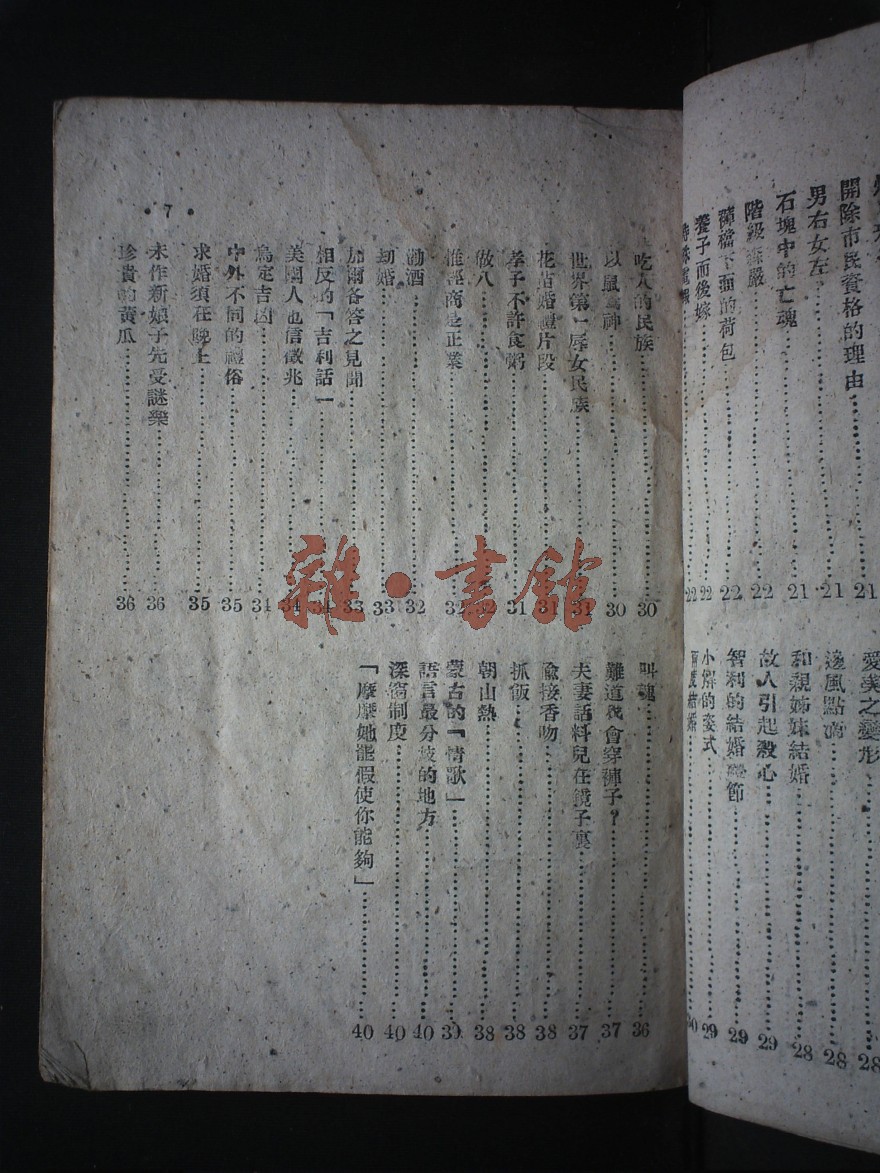 開除市民資格的理由……21
男右女左……21
石塊中的亡魂……21
階級森嚴……22
下面的荷包……22
養子而後嫁……22
22
愛美之變形……28
邊風點滴……28
和親姊妹結婚……28
故人引起殺心……29
智利的結婚禮節……29
小解的姿式……29
結婚……30
吃人的民族……30
以鼠為神……30
世界第一辱女民族……31
花苗婚禮片段……31
孝子不許食粥……31
做八……32
惟淫商是正業……32
勸酒……32
刼婚……33
加爾各答之見聞……33
相反的「吉利話」……34
美國人也信徵兆……34
鳥定吉凶……34
中外不同的禮俗……35
求婚須在晚上……35
未作新娘子先受謎樂……36
珍貴的黃瓜……36
叫魂……36
難道我會穿褲子？……37
夫妻話料兒在鏡子裏……37
偷接香吻……38
抓飯……38
朝山熱……38
蒙古的「情歌」……39
語言最分歧的地方……40
深窗制度……40
「摩摩她能假使你能夠」……40
• 7 •
雜•書館